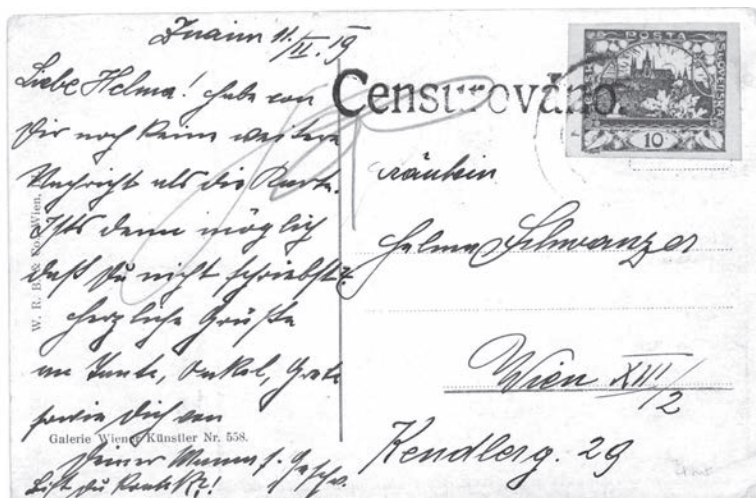 Znaim 11./II. 19
Liebe Helma! Habe von
Dir noch keine weitere
Nachricht als die Karte.
Ists denn möglich
daß Du nicht schriebst?
Herzliche Grüße
an Tante, Onkel, Grete
sowie Dich von
Deiner Mamma s. Geschw.
Bist du
W. R. B. & Co. Wien,
Galerie Wiener Künstler Nr. 558.
Censurováno.
POSTA
SLOVENSKA
10
Fräulein
Helma Schwanzer
Wien XIII/2
Kendlerg. 29